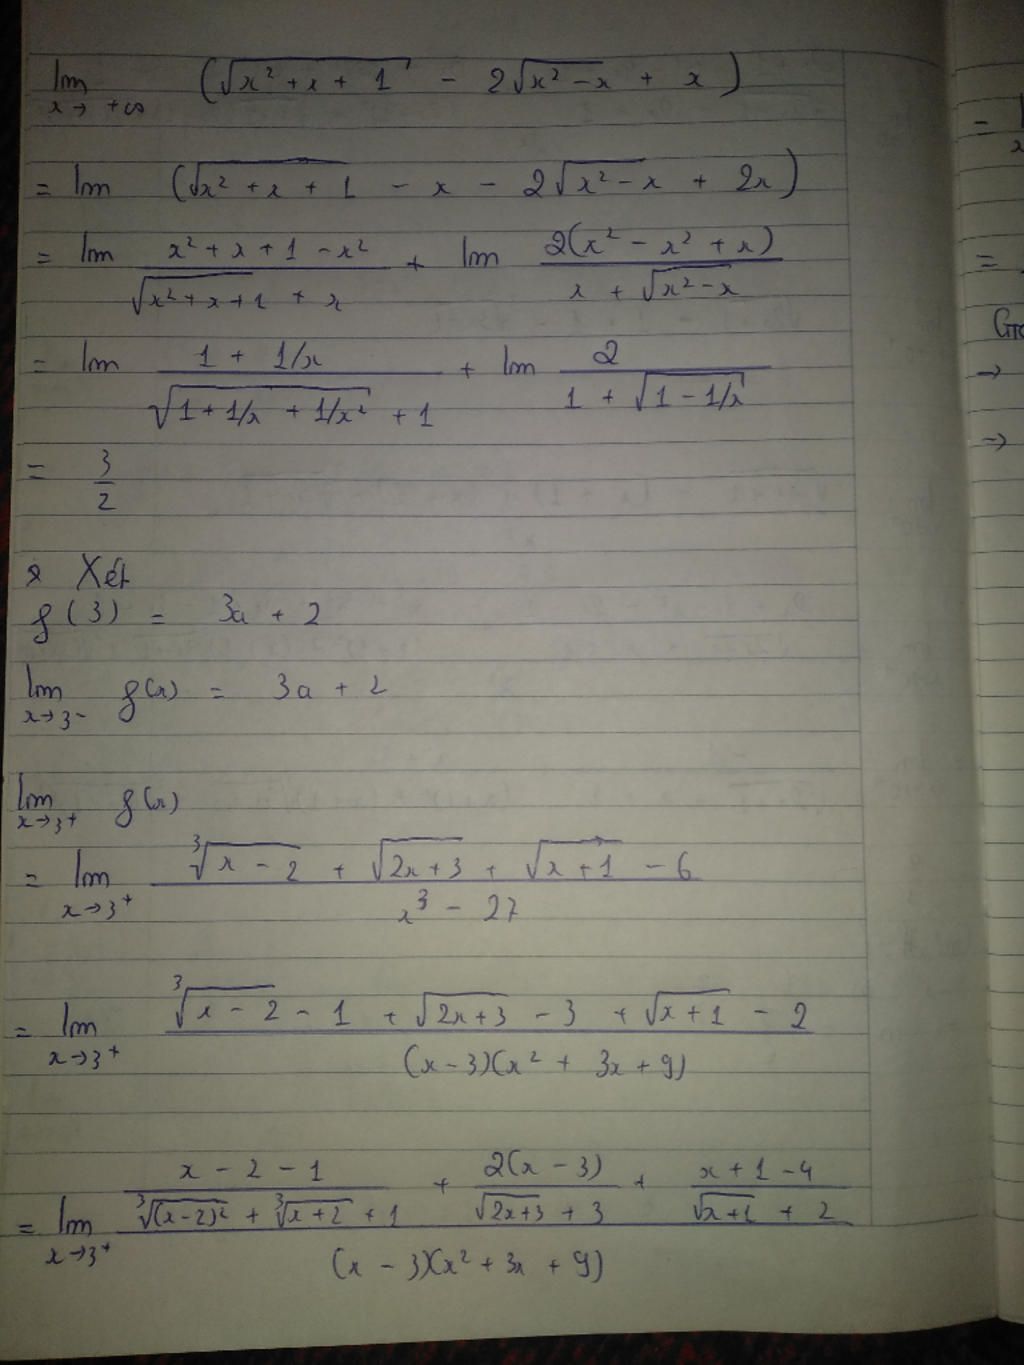 lim x→+∞ (√(x² + x + 1) − 2√(x² − x) + x)
= lim (√(x² + x + 1) − x − 2√(x² − x) + 2x)
= lim (x² + x + 1 − x²)/(√(x² + x + 1) + x) + lim 2(x² − x² + x)/(x + √(x² − x))
= lim (1 + 1/x)/(√(1 + 1/x + 1/x²) + 1) + lim 2/(1 + √(1 − 1/x))
= 3/2
Xét
f(3) = 3a + 2
lim x→3⁻ f(x) = 3a + 2
lim x→3⁺ f(x)
= lim x→3⁺ (∛(x − 2) + √(2x + 3) + √(x + 1) − 6)/(x³ − 27)
= lim x→3⁺ (∛(x − 2) − 1 + √(2x + 3) − 3 + √(x + 1) − 2)/((x − 3)(x² + 3x + 9))
= lim x→3⁺ ((x − 2 − 1)/(∛(x−2)² + ∛(x+2) + 1) + 2(x − 3)/(√(2x+3) + 3) + (x + 1 − 4)/(√(x+1) + 2))/((x − 3)(x² + 3x + 9))